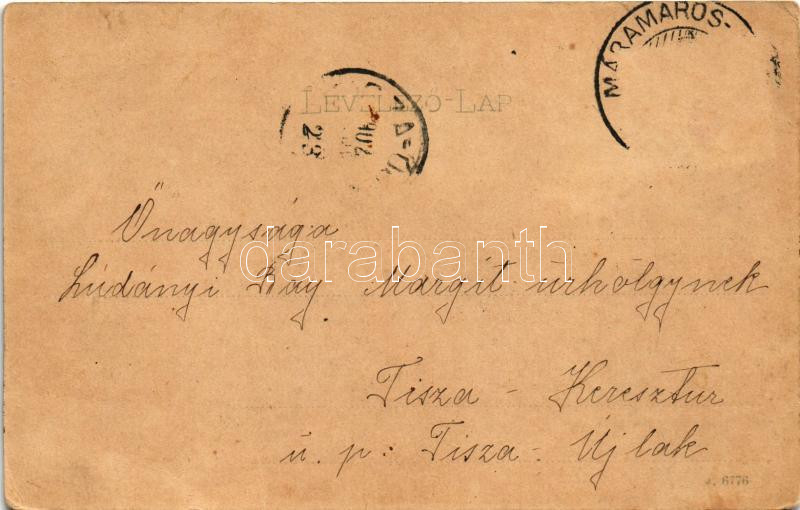 MÁRAMAROS-
LEVELEZŐ-LAP
23
Őnagysága
Ludányi Bay Margit úrhölgynek
darabanth
Tisza - Keresztur
u. p: Tisza - Újlak
6776